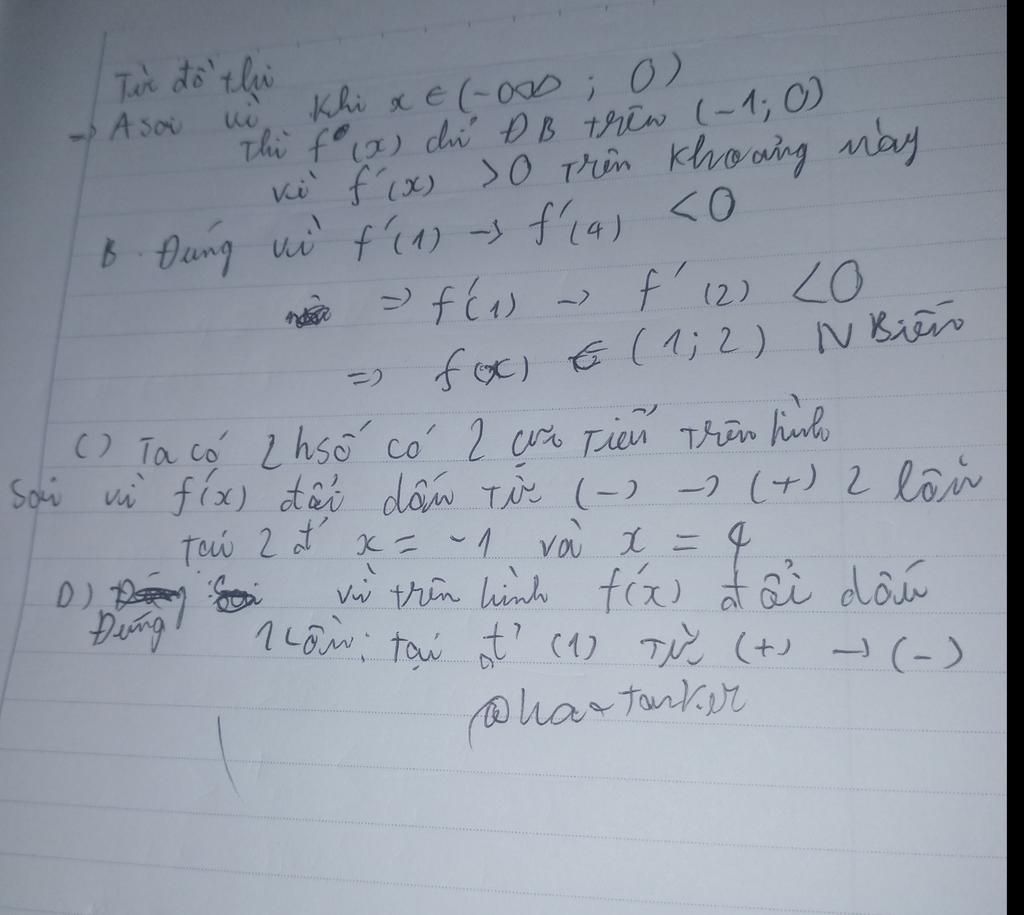 Từ đồ thị
-> A sai vì khi x ∈ (-∞ ; 0)
Thì f'(x) chỉ ĐB trên (-1; 0)
vì f'(x) > 0 trên khoảng này
B. Đúng vì f'(1) -> f'(4) < 0
=> f'(1) -> f'(2) < 0
=> f(x) ∈ (1; 2) N Biến
C) Ta có 2 hsố có 2 cực tiểu trên hình
Sai vì f'(x) đổi dấu từ (-) -> (+) 2 lần
tại 2 đ' x = -1 và x = 4
D) vì trên hình f'(x) đổi dấu
Đúng 1 lần: tại đ' (1) từ (+) -> (-)